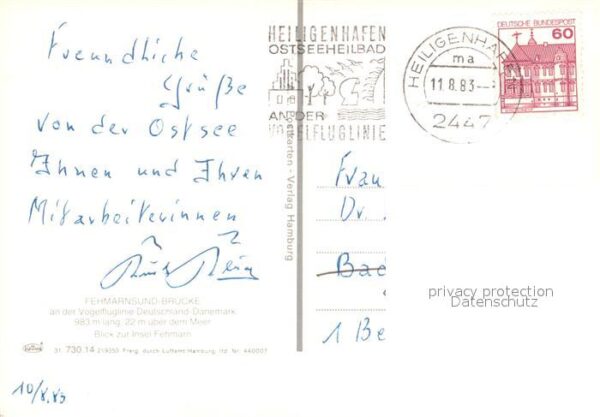 Freundliche
Grüße
von der Ostsee
Ihnen und Ihren
Mitarbeiterinnen
FEHMARNSUND-BRÜCKE
an der Vogelfluglinie Deutschland-Dänemark
963 m lang, 22 m über dem Meer
Blick zur Insel Fehmarn
31. 730.14 219350 Freig. durch Luftamt Hamburg, lfd. Nr. 440007
10/8.83
Postkarten - Verlag Hamburg
HEILIGENHAFEN
OSTSEEHEILBAD
AN DER
VOGELFLUGLINIE
HEILIGENHAFEN
ma
11.8.83
2447
DEUTSCHE BUNDESPOST
60
Frau
Dr.
Bad
1 Be
privacy protection
Datenschutz